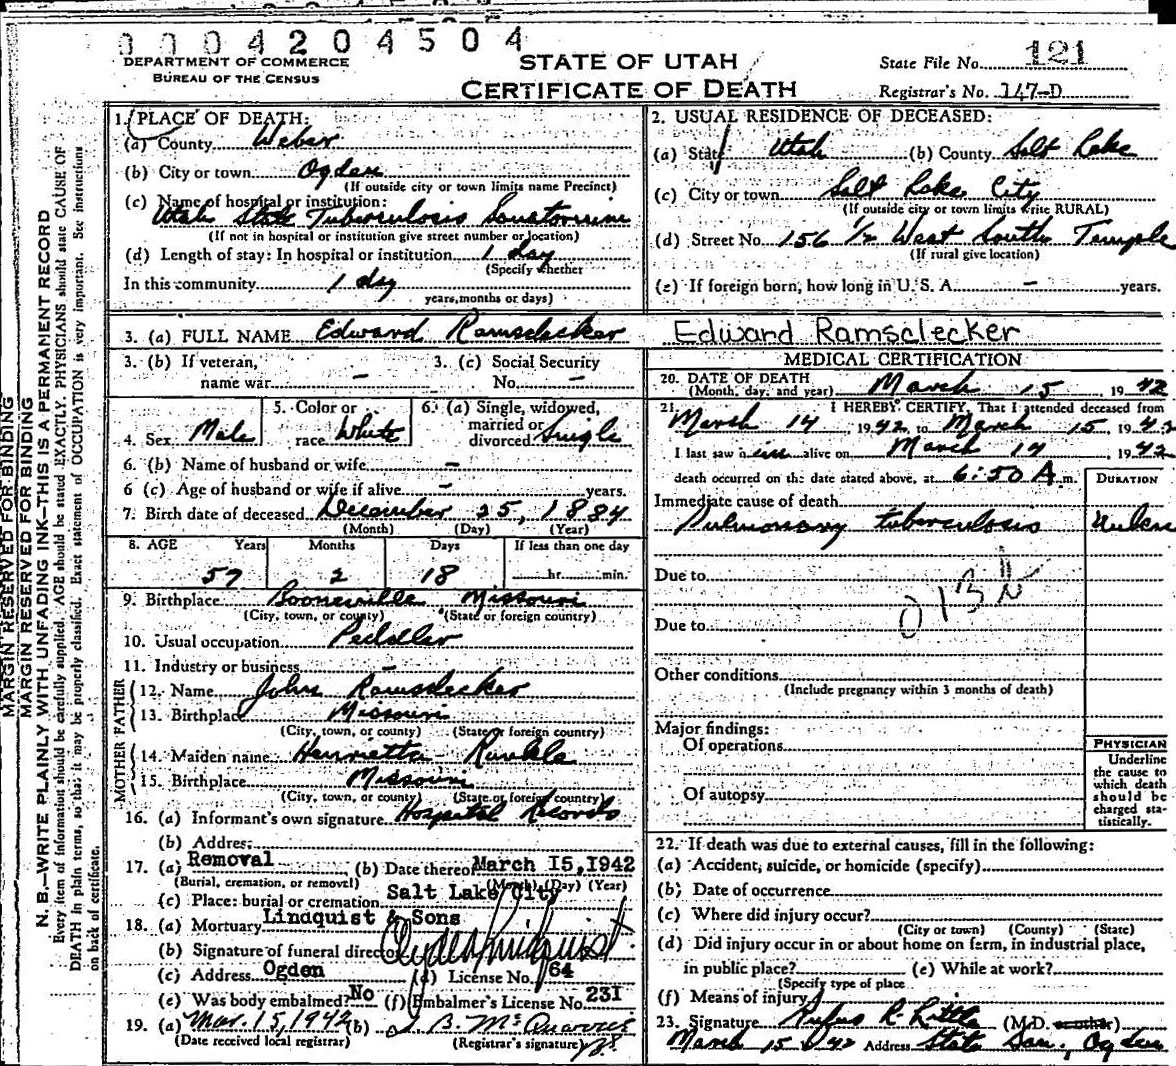 0 0 0 4 2 0 4 5 0 4
DEPARTMENT OF COMMERCE
BUREAU OF THE CENSUS
STATE OF UTAH
CERTIFICATE OF DEATH
State File No. 121
Registrar's No. 147-D
MARGIN RESERVED FOR BINDING
MARGIN RESERVED FOR BINDING
N. B.—WRITE PLAINLY WITH UNFADING INK—THIS IS A PERMANENT RECORD
Every item of information should be carefully supplied. AGE should be stated EXACTLY. PHYSICIANS should state CAUSE OF
DEATH in plain terms, so that it may be properly classified. Exact statement of OCCUPATION is very important. See instructions
on back of certificate.
1. PLACE OF DEATH:
(a) County Weber
(b) City or town Ogden
(If outside city or town limits name Precinct)
(c) Name of hospital or institution:
Utah State Tuberculosis Sanatorium
(If not in hospital or institution give street number or location)
(d) Length of stay: In hospital or institution 1 day
(Specify whether
In this community 1 day
years, months or days)
2. USUAL RESIDENCE OF DECEASED:
(a) State Utah (b) County Salt Lake
(c) City or town Salt Lake City
(If outside city or town limits write RURAL)
(d) Street No. 156 1/2 West South Temple
(If rural give location)
(e) If foreign born, how long in U. S. A. – years.
3. (a) FULL NAME Edward Ramsclecker
Edward Ramsclecker
3. (b) If veteran,
name war –
3. (c) Social Security
No. –
4. Sex Male
5. Color or
race White
6. (a) Single, widowed,
married or
divorced Single
6. (b) Name of husband or wife –
6 (c) Age of husband or wife if alive – years.
7. Birth date of deceased December 25, 1884
(Month) (Day) (Year)
8. AGE Years Months Days If less than one day
57 2 18 hr. min.
9. Birthplace Booneville Missouri
(City, town, or county) (State or foreign country)
10. Usual occupation Peddler
11. Industry or business –
FATHER
12. Name John Ramsclecker
13. Birthplace Missouri
(City, town, or county) (State or foreign country)
MOTHER
14. Maiden name Henrietta
15. Birthplace Missouri
(City, town, or county) (State or foreign country)
16. (a) Informant's own signature Hospital Records
(b) Address
17. (a) Removal (b) Date thereof March 15, 1942
(Burial, cremation, or removal) (Month) (Day) (Year)
(c) Place: burial or cremation Salt Lake City
18. (a) Mortuary Lindquist & Sons
(b) Signature of funeral director Clyde Lindquist
(c) Address Ogden (d) License No. 64
(e) Was body embalmed? No (f) Embalmer's License No. 231
19. (a) Mar. 15, 1942 (b) J. B.
(Date received local registrar) (Registrar's signature)
MEDICAL CERTIFICATION
20. DATE OF DEATH
(Month, day, and year) March 15 1942
21. I HEREBY CERTIFY, That I attended deceased from
March 14 1942 to March 15, 1942
I last saw him alive on March 14, 1942
death occurred on the date stated above, at 6:50 A m.
DURATION
Immediate cause of death
Pulmonary tuberculosis
Due to
013
Due to
Other conditions
(Include pregnancy within 3 months of death)
Major findings:
Of operations
Of autopsy
PHYSICIAN
Underline
the cause to
which death
should be
charged sta-
tistically.
22. If death was due to external causes, fill in the following:
(a) Accident, suicide, or homicide (specify)
(b) Date of occurrence
(c) Where did injury occur?
(City or town) (County) (State)
(d) Did injury occur in or about home on farm, in industrial place,
in public place? (e) While at work?
(Specify type of place
(f) Means of injury
23. Signature Rufus R. Little (M.D. or other)
March 15 42 Address State San., Ogden